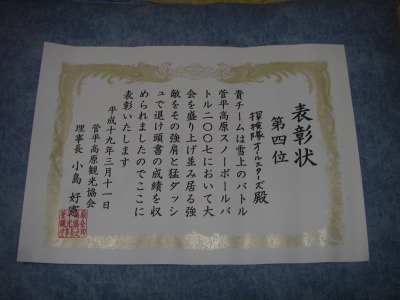 表彰状
第四位
探検隊オールスターズ殿
貴チームは雪上のバトル
菅平高原スノーボールバ
トル二〇〇七において大
会を盛り上げ並み居る強
敵をその強肩と猛ダッシ
ュで退け頭書の成績を収
められましたのでここに
表彰いたします
平成十九年三月十一日
菅平高原観光協会
理事長 小島 好憲